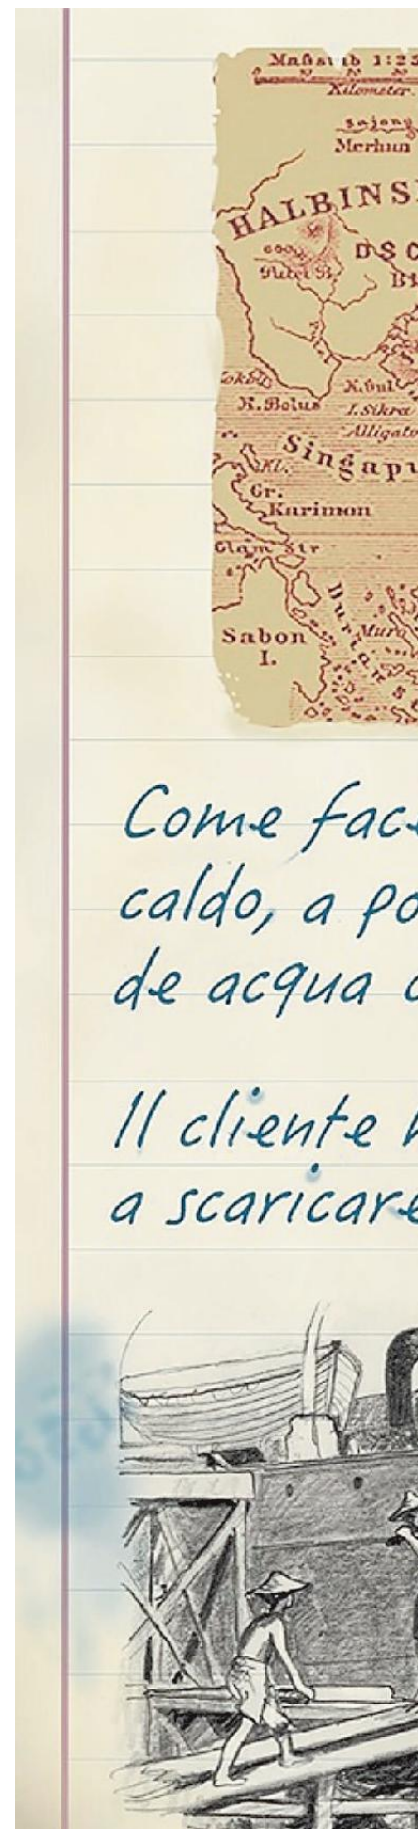 Maßstab 1:2
Kilometer
Merhun
HALBINS
K. Bulus
I. Sikra
Alligato
Singapu
Kl.
Gr.
Karimon
Str
Durian
Sabon
I.
Come face
caldo, a po
de acqua
Il cliente
a scaricare